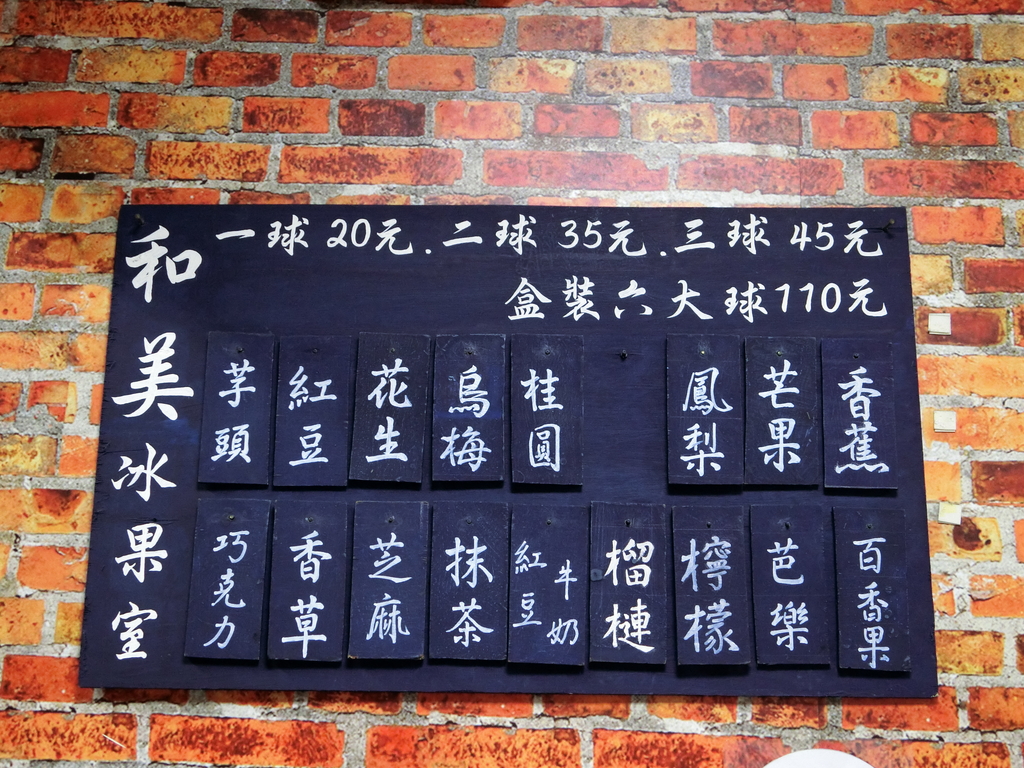 和美冰果室
一球20元.二球35元.三球45元
盒裝六大球110元
芋頭
紅豆
花生
烏梅
桂圓
鳳梨
芒果
香蕉
巧克力
香草
芝麻
抹茶
紅豆牛奶
榴槤
檸檬
芭樂
百香果